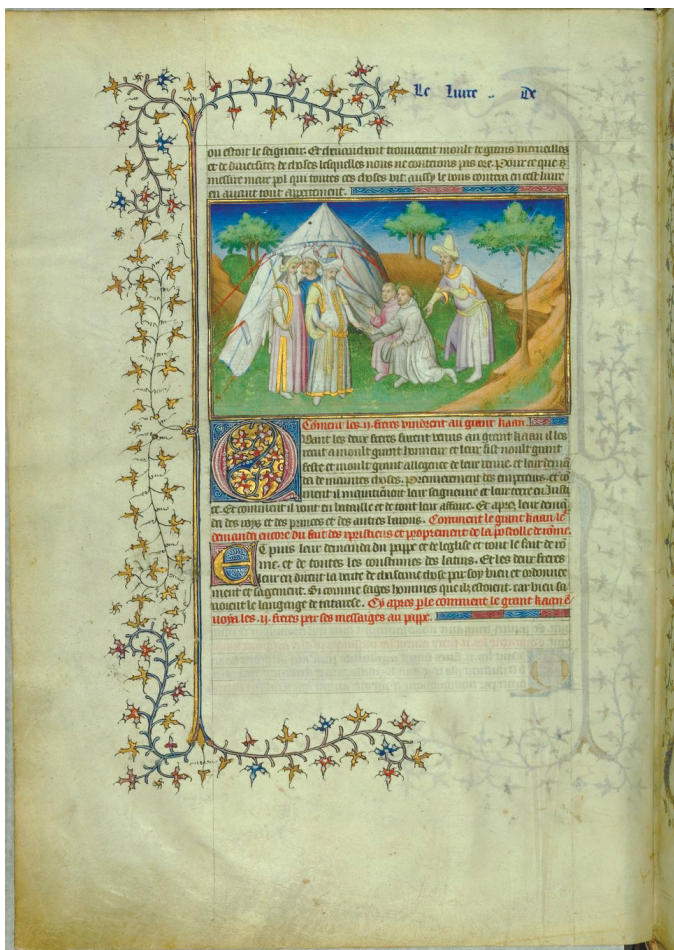 Le liure De
ou estoit le seigneur. Et cheuauchant trouuerent moult de grans merueilles
et de diuersitez de choses lesquelles nous ne conterons pas ore. Pour ce que
messire marc pol qui toutes ces choses vit aussy le vous contera en cest liure
en auant tout apertement.
Coment les .ij. freres vindrent au grant kaan.
Quant les deux freres furent venus au grant kaan il les
recut a moult grant honneur et leur fist moult grant
feste et moult grant allegrece de leur venue. et leur demā
da de maintes choses. Premierement des empereurs. et cō
ment il maintiennent leur seigneurie et leur terre en Justi
ce. Et comment il vont en bataille et de tout leur affaire. Et apres leur demā
da des roys et des princes et des autres barons. Comment le grant kaan le
demanda encore du fait des xpistiens et proprement de la postolle de rōme.
Et puis leur demanda du pape et de leglise et tout le fait de rō
me. et de toutes les coustumes des latins. Et les deux freres
leur en dirent la verite de chascune chose par soy bien et ordonnee
ment et sagement. Si comme sages hommes que ilz estoient. car bien sa
uoient le langaige de tatarese. Cy apres ple comment le grant kaan ē
uoya les .ij. freres pour ses messaiges au pape.